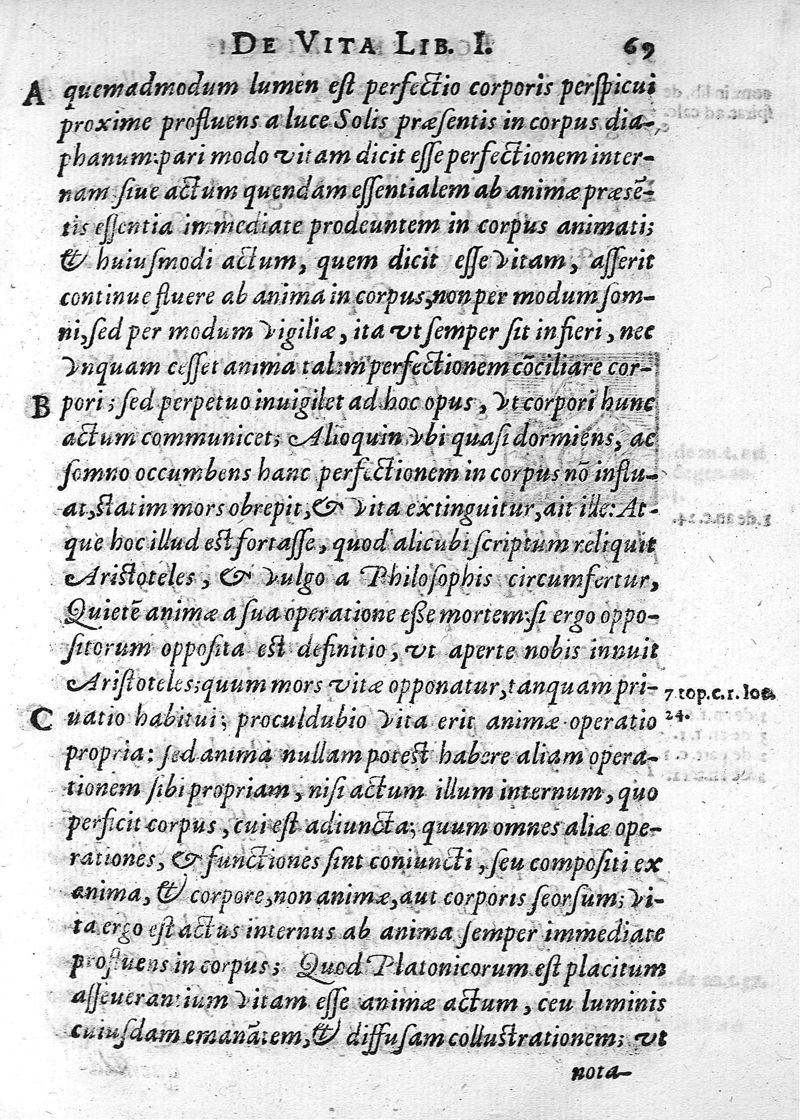 DE VITA LIB. I. 69
A quemadmodum lumen est perfectio corporis perspicui
proxime profluens a luce Solis præsentis in corpus dia-
phanum: pari modo vitam dicit esse perfectionem inter-
nam siue actum quendam essentialem ab animæ præsẽ-
tis essentia immediate prodeuntem in corpus animati;
& huiusmodi actum, quem dicit esse vitam, asserit
continue fluere ab anima in corpus, non per modum som-
ni, sed per modum vigiliæ, ita vt semper sit in fieri, nec
vnquam cesset anima talem perfectionem cõciliare cor-
B pori; sed perpetuo inuigilet ad hoc opus, vt corpori hunc
actum communicet; Alioquin vbi quasi dormiens, ac
somno occumbens hanc perfectionem in corpus nõ influ-
at, statim mors obrepit, & vita extinguitur, ait ille: At-
que hoc illud est fortasse, quod alicubi scriptum reliquit
Aristoteles, & vulgo a Philosophis circumfertur,
Quietẽ animæ a sua operatione esse mortem: si ergo oppo-
sitorum opposita est definitio, vt aperte nobis innuit
Aristoteles; quum mors vitæ opponatur, tanquam pri-
7. top. c. 1. loc.
C uatio habitui; proculdubio vita erit animæ operatio
24.
propria: sed anima nullam potest habere aliam opera-
tionem sibi propriam, nisi actum illum internum, quo
perficit corpus, cui est adiuncta; quum omnes aliæ ope-
rationes, & functiones sint coniuncti, seu compositi ex
anima, & corpore, non animæ, aut corporis seorsum; vi-
ta ergo est actus internus ab anima semper immediate
profluens in corpus; Quod Platonicorum est placitum
asseuerantium vitam esse animæ actum, ceu luminis
cuiusdam emanãtem, & diffusam collustrationem; vt
nota-